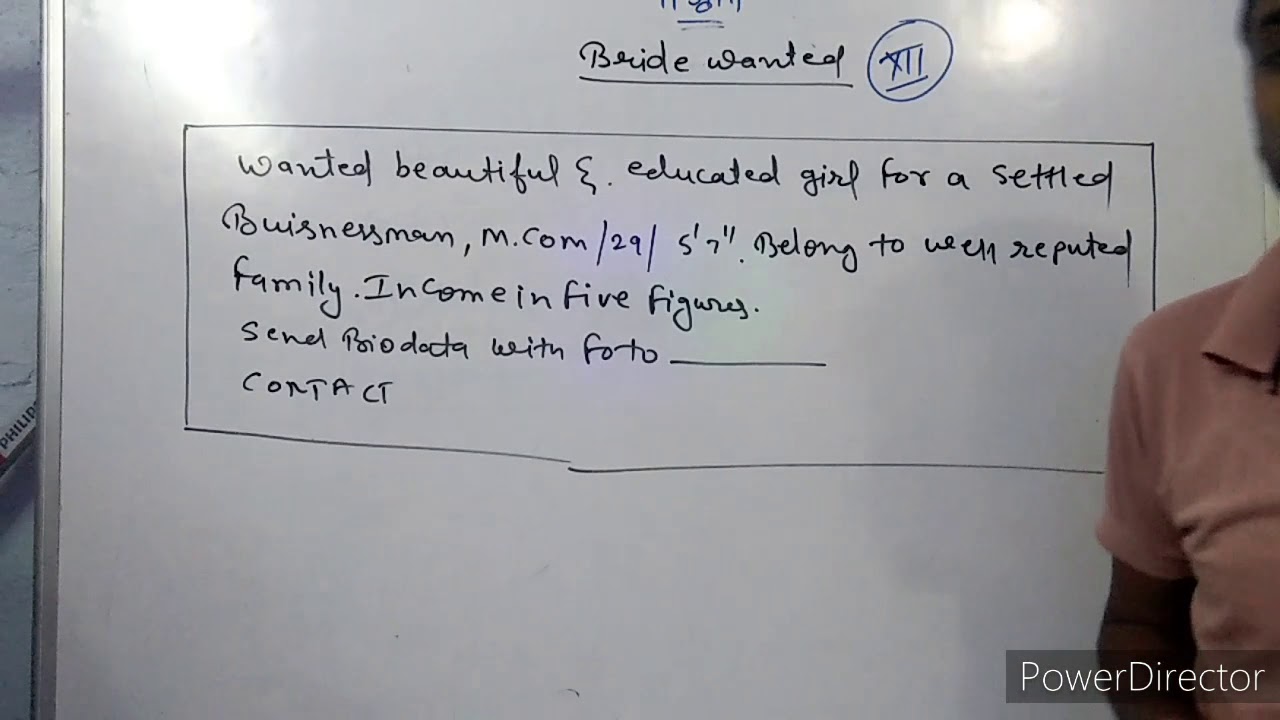 Bride wanted XII
Wanted beautiful &. educated girl for a settled
Buisnessman, M.Com /29/ 5'7". Belong to well reputed
family. Income in five figures.
Send Biodata with foto ________
CONTACT
PHILIP
PowerDirector